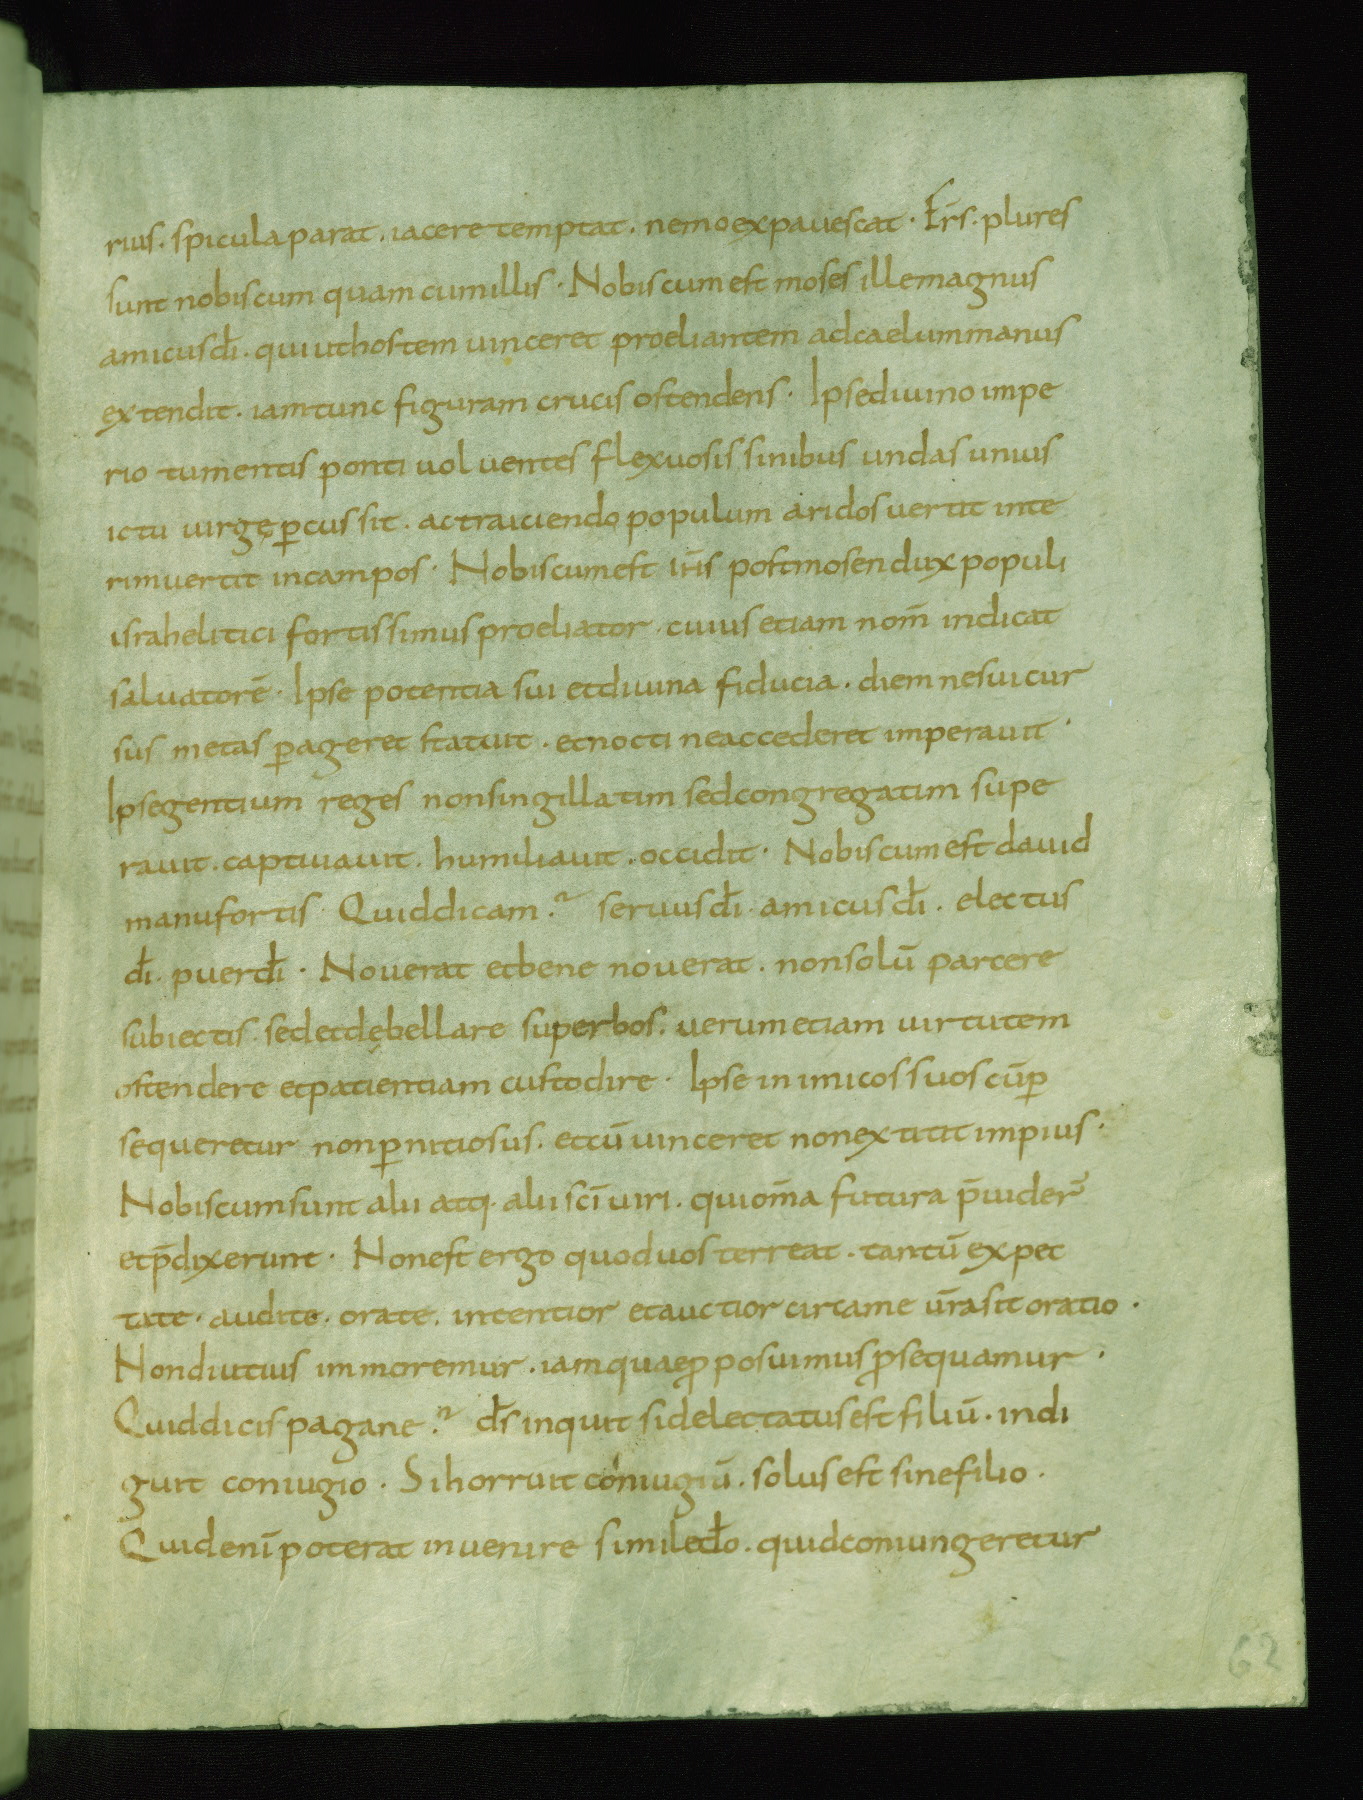 rius. spicula parat. iacere temptat. nemo expauescat. Frs̄. plures
sunt nobiscum quam cum illis. Nobiscum est moses ille magnus
amicus dī. qui ut hostem uinceret proeliantem ad caelum manus
extendit. iam tunc figuram crucis ostendens. Ipse diuino impe
rio tumentis ponti uoluentes flexuosis sinibus undas unius
ictu uirgę ꝑcussit. ac traiciendo populum aridos uertit inte
rim uertit in campos. Nobiscum est ih̄s post mosen dux populi
israhelitici fortissimus proeliator. cuius etiam nom̄ indicat
saluatorē. Ipse potentia sui et diuina fiducia. diem ne sui cur
sus metas ꝑageret statuit. et nocti ne accederet imperauit.
Ipse gentium reges non singillatim sed congregatim supe
rauit. captiuauit. humiliauit. occidit. Nobiscum est dauid
manu fortis. Quid dicam? seruus dī. amicus dī. electus
dī. puer dī. Nouerat et bene nouerat. non solū parcere
subiectis. sed et dębellare superbos. uerum etiam uirtutem
ostendere et patientiam custodire. Ipse inimicos suos cū ꝑ
sequeretur non ꝑnitiosus. et cū uinceret non extitit impius.
Nobiscum sunt alii atq. alii scī uiri. qui om̄a futura p̄uider̄
et p̄dixerunt. Non est ergo quod uos terreat. tantū expec
tate. audite. orate. intentior et auctior circa me ūra sit oratio.
Non diutius immoremur. iam quae ꝓposuimus ꝓsequamur.
Quid dicis pagane? ds̄ inquit si delectatus est filiū. indi
guit coniugio. Si horruit coniugiū. solus est sine filio.
Quid enī poterat inuenire simile dō. quid coniungeretur
62